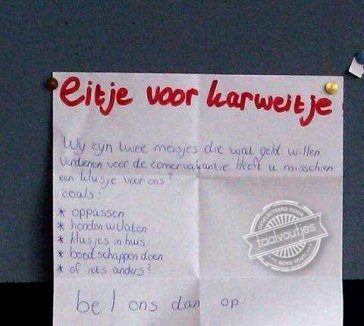 eitje voor karweitje
Wy zyn twee meisjes die wat geld willen
verdienen voor de zomervakantie. Heeft u misschien
een klusje voor ons?
zoals:
* oppassen
* honden uitlaten
* klusjes in huis
* boodschappen doen
* of iets anders?
bel ons dan op
taalvoutjes